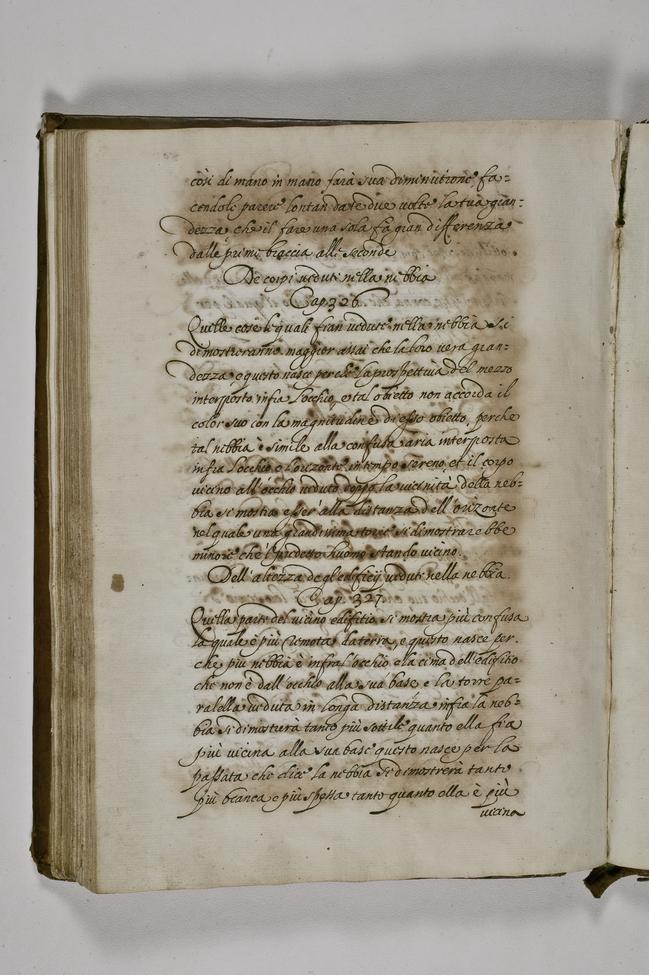 così di mano in mano farà sua diminutione, fa=
cendole parere lontan da te due volte la tua gran=
dezza, che il fare una sola fa gran differenza
dalle prime braccia alle seconde
De corpi veduti nella nebbia
Cap. 326.
Quelle cose le quali fian vedute nella nebbia si
dimostreranno maggior assai che la loro vera gran=
dezza, e questo nasce perche la prospettiva del mezzo
interposto infra l'occhio, e tal obietto non accorda il
color suo con la magnitudine di esso obietto, perche
tal nebbia è simile alla confusa aria interposta
infra l'occhio e l'orizonte in tempo sereno, et il corpo
vicino all'occhio veduto doppo la vicinità della neb=
bia si mostra esser alla distanza dell'orizonte
nel quale una grandissima torre si dimostrarebbe
minore che 'l predetto huomo stando vicino.
Dell'altezza de gl'edificij veduti nella nebbia.
Cap. 327
Quella parte del vicino edifitio si mostra più confusa
la quale è più remota da terra, e questo nasce per=
che più nebbia è infra l'occhio e la cima dell'edifitio
che non è dall'occhio alla sua base e la torre pa=
ralella veduta in longa distanza infra la neb=
bia si dimostrerà tanto più sottile quanto ella fia
più vicina alla sua base questo nasce per la
passata che dice la nebbia si dimostrerà tanto
più bianca e più spessa tanto quanto ella è più
vicina